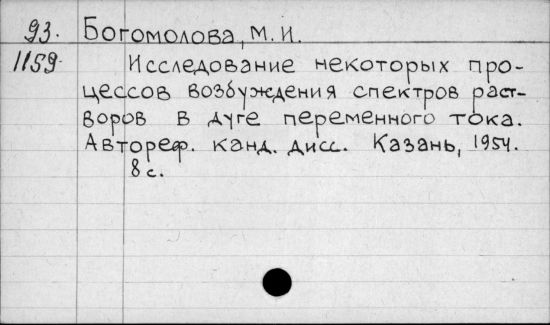 93. Богомолова, М. И.
1159. Исследование некоторых про-
цессов возбуждения спектров раст-
воров в дуге переменного тока.
Автореф. канд. дисс. Казань, 1954.
8 с.